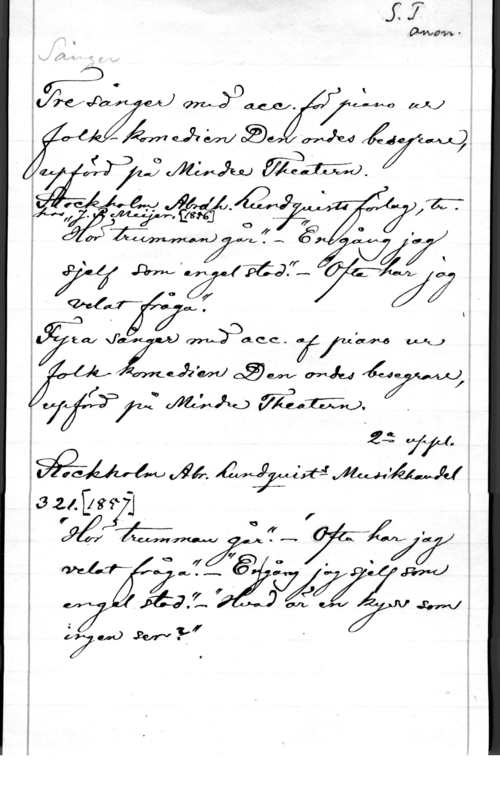 S. T
anon.
Sånger
Tre sånger med acc. för piano ur
folk-komedien Den ondes besegrare,
upförd på Mindre Theatern.
Stockholm Abrah. Lundquists förlag, tr.
hos J. & Meijer. [1856]
"Hör trumman går." - "En gång jag
sjelf som engel stod." - "Ofta har jag
velat fråga."
Fyra sånger med acc. af piano ur
folk-komedien Den ondes besegrare,
upförd på Mindre Theatern.
2a uppl.
Stockholm Abr. Lundquists Musikhandel
321. [1857]
"Hör trumman går." - "Ofta har jag
velat fråga." - "En gång jag sjelf som
engel stod." - "Hvad är en kyss som
ingen ser?"